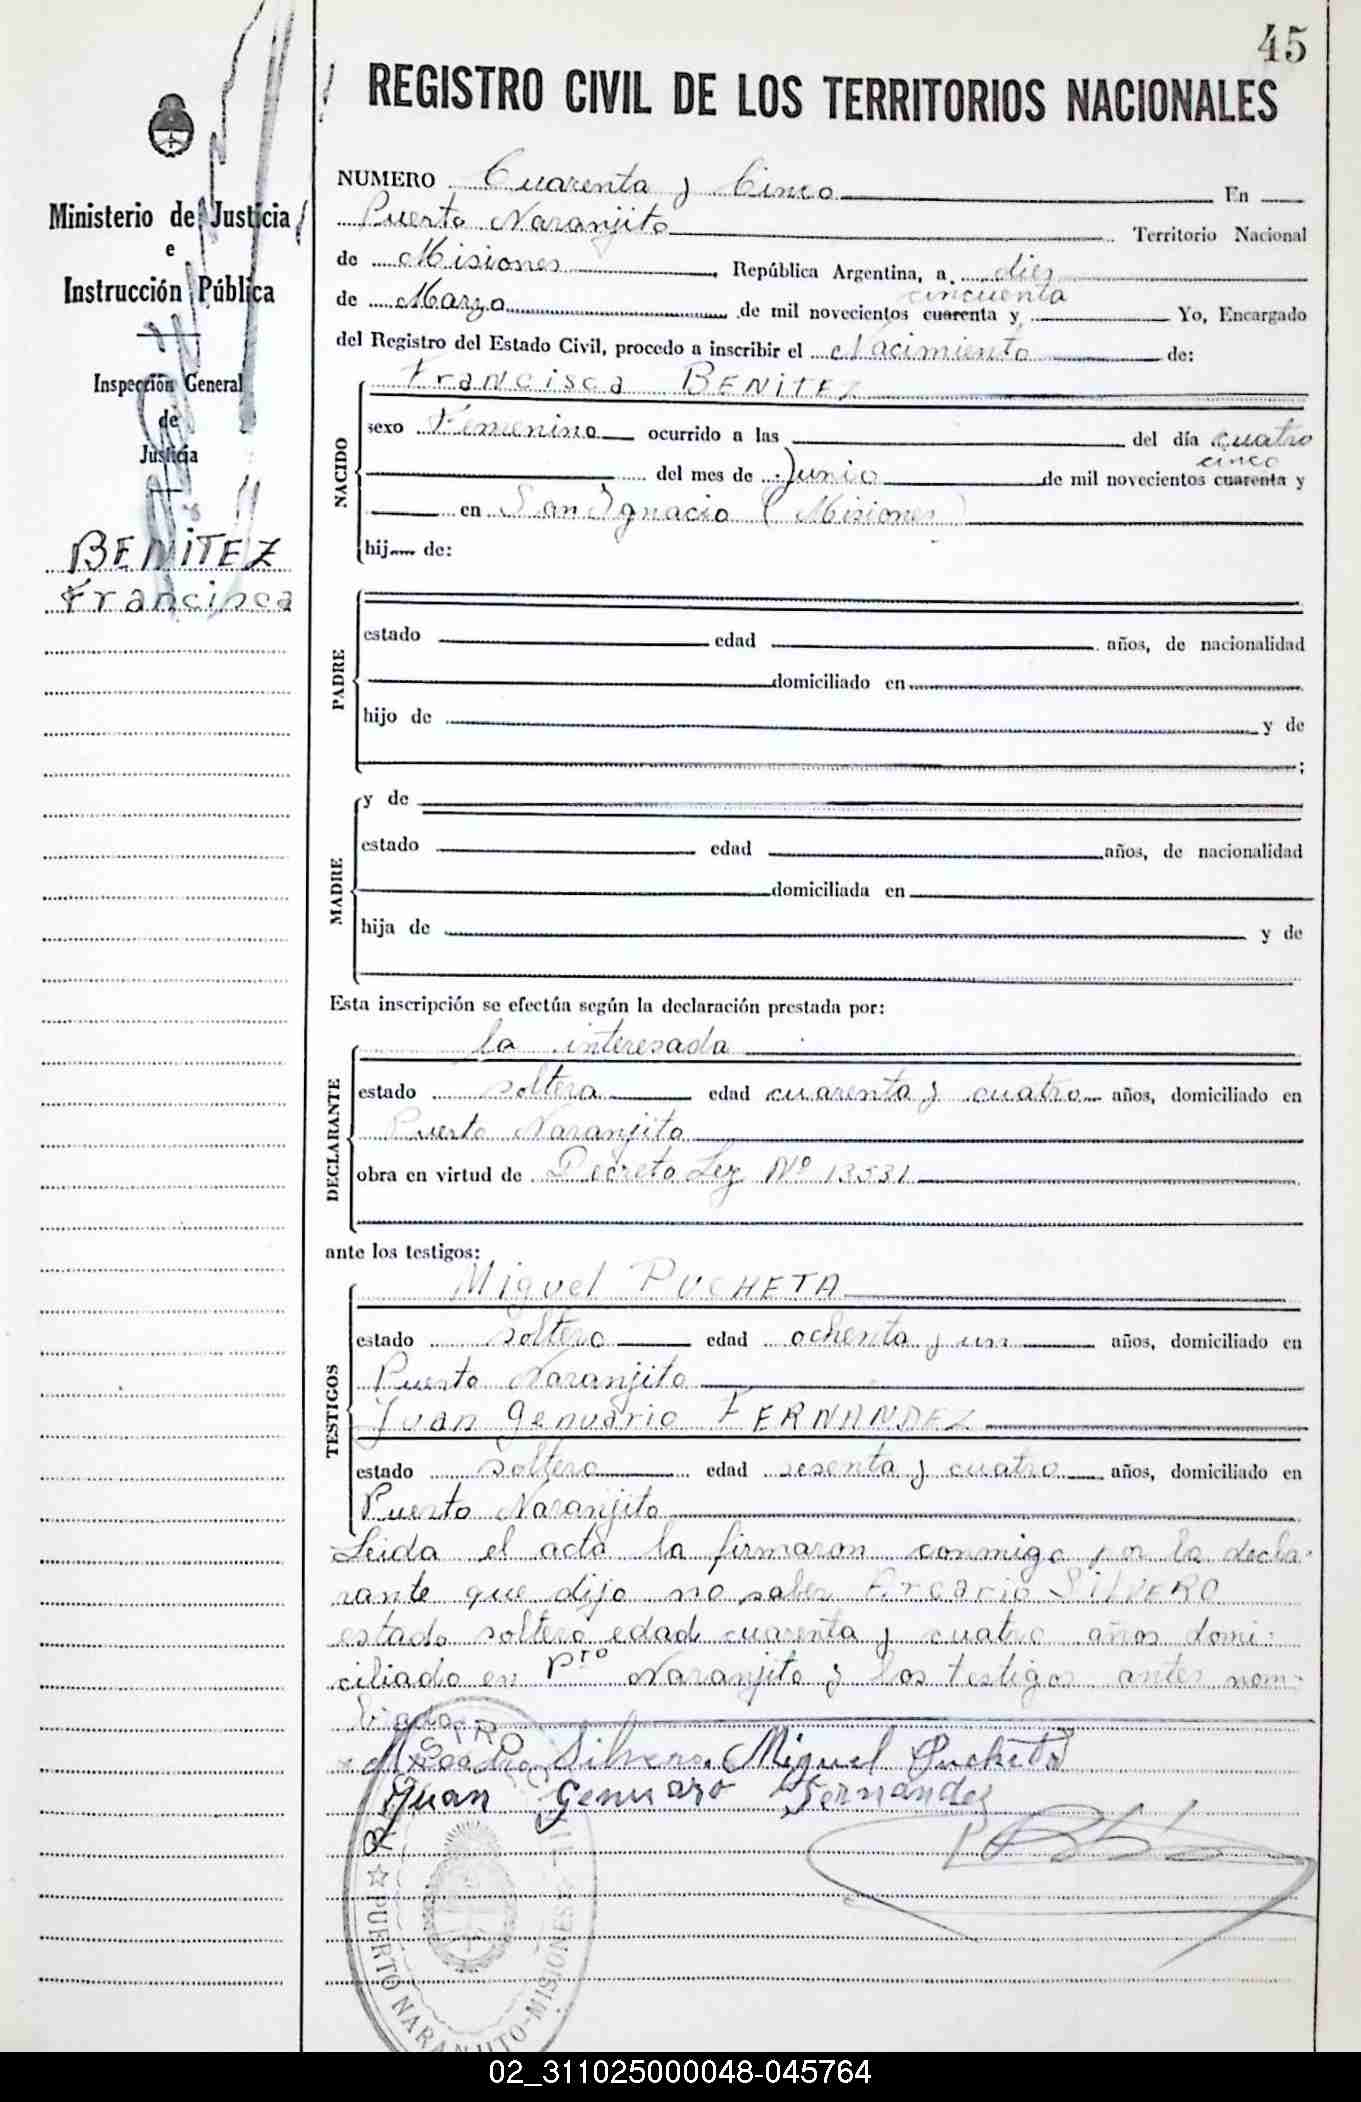 45
REGISTRO CIVIL DE LOS TERRITORIOS NACIONALES
Ministerio de Justicia
e
Instrucción Pública
Inspección General
de
Justicia
BENITEZ
Francisca
NUMERO Cuarenta y Cinco En
Puerto Naranjito Territorio Nacional
de Misiones República Argentina, a diez
cincuenta
de Marzo de mil novecientos cuarenta y Yo, Encargado
del Registro del Estado Civil, procedo a inscribir el Nacimiento de:
NACIDO
Francisca BENITEZ
sexo Femenino ocurrido a las del día cuatro
cinco
del mes de Junio de mil novecientos cuarenta y
en San Ignacio (Misiones)
hij de:
PADRE
estado edad años, de nacionalidad
domiciliado en
hijo de y de
;
MADRE
y de
estado edad años, de nacionalidad
domiciliada en
hija de y de
Esta inscripción se efectúa según la declaración prestada por:
DECLARANTE
la interesada
estado soltera edad cuarenta y cuatro años, domiciliado en
Puerto Naranjito
obra en virtud de Decreto Ley Nº 13531
ante los testigos:
TESTIGOS
Miguel PUCHETA
estado soltero edad ochenta y un años, domiciliado en
Puerto Naranjito
Juan Genuario FERNANDEZ
estado soltero edad sesenta y cuatro años, domiciliado en
Puerto Naranjito
Leida el acta la firmaron conmigo por la decla-
rante que dijo no saber Arcario SILVERO
estado soltero edad cuarenta y cuatro años domi-
ciliado en Pto Naranjito y los testigos antes nom-
brados
Silvero Miguel Pucheta
Juan Genuaro Fernandez
PUERTO NARANJITO-MISIONES
02_311025000048-045764